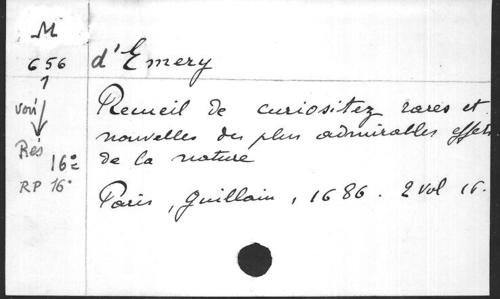 M
656
1
d'Emery
voir
Rés
16º
RP 16º
Recueil de curiositez rares et
nouvelles des plus admirables effets
de la nature
Paris, Guillain, 1686. 2 vol 16.